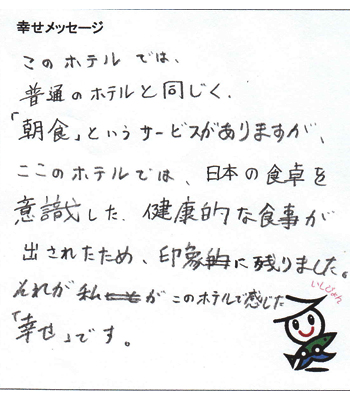 幸せメッセージ
このホテルでは、
普通のホテルと同じく、
「朝食」というサービスがありますが、
ここのホテルでは、日本の食卓を
意識した、健康的な食事が
出されたため、印象的に残りました。
それが私がこのホテルで感じた
「幸せ」です。
いしじゅん